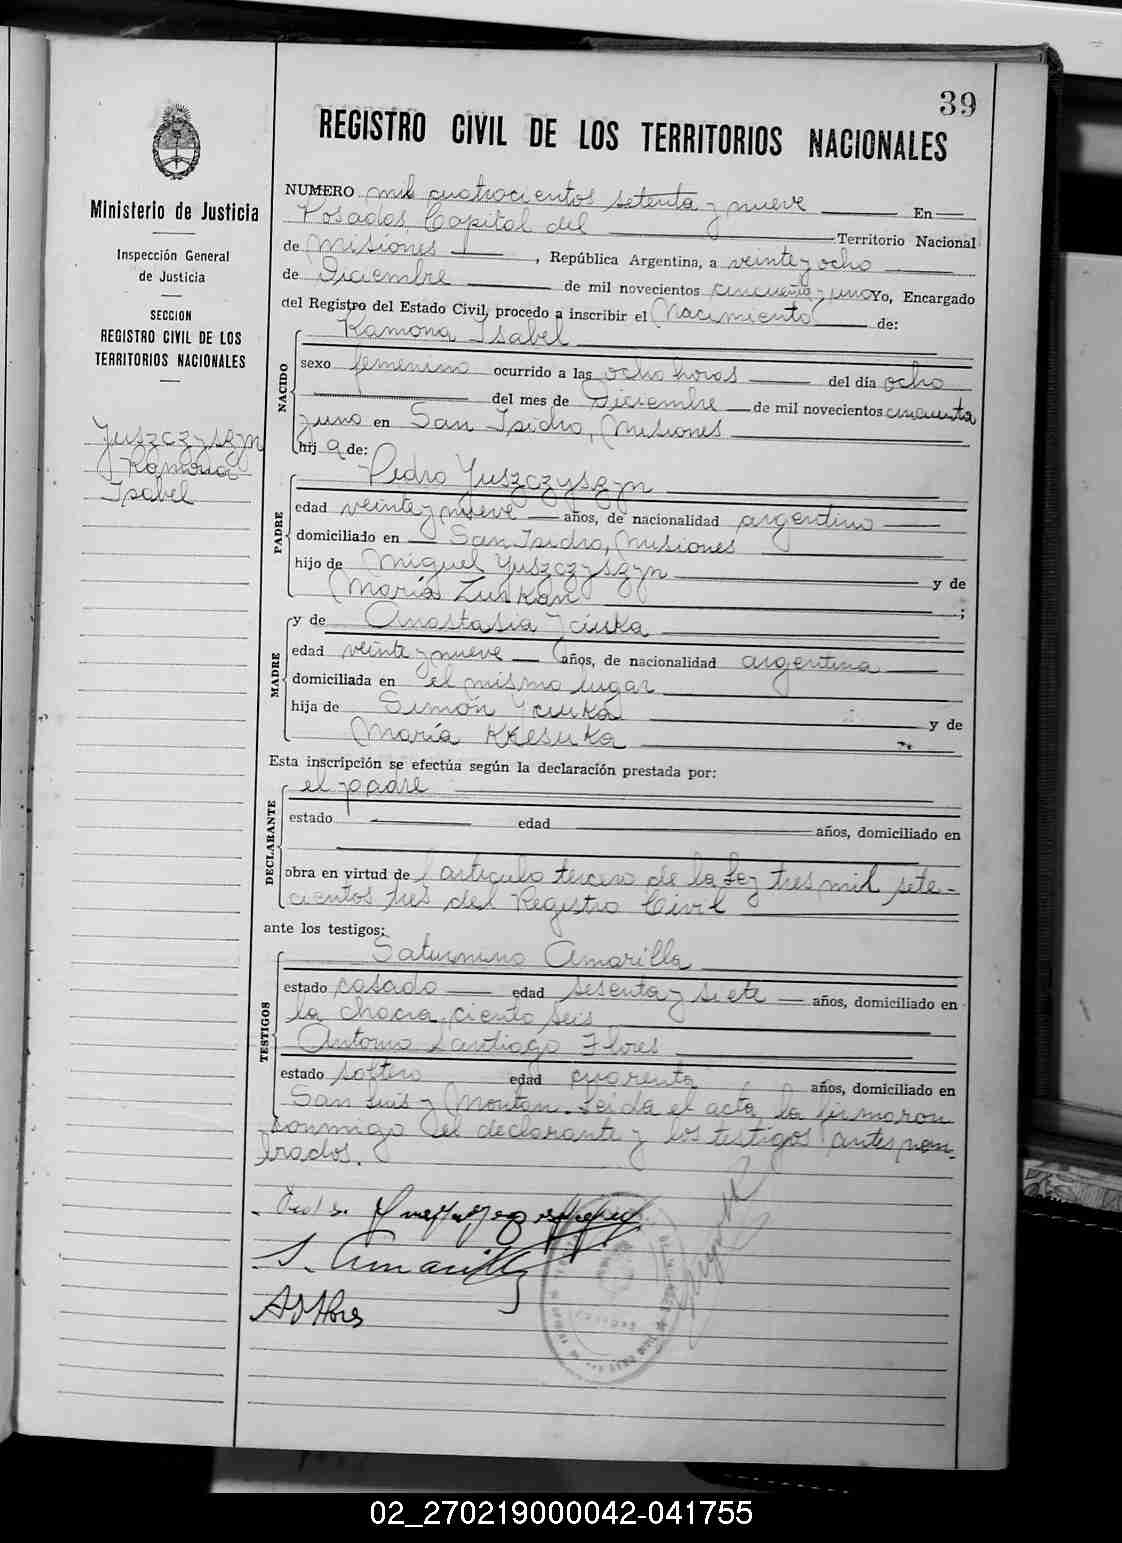 39
REGISTRO CIVIL DE LOS TERRITORIOS NACIONALES
Ministerio de Justicia
Inspección General
de Justicia
SECCION
REGISTRO CIVIL DE LOS
TERRITORIOS NACIONALES
Yuszczyszyn
Ramona
Isabel
NUMERO mil cuatrocientos setenta y nueve En
Posadas, Capital del Territorio Nacional
de Misiones, República Argentina, a veinte y ocho
de Diciembre de mil novecientos cincuenta y uno Yo, Encargado
del Registro del Estado Civil, procedo a inscribir el Nacimiento de:
NACIDO
Ramona Isabel
sexo femenino ocurrido a las ocho horas del día ocho
del mes de Diciembre de mil novecientos cincuenta
y uno en San Isidro, Misiones
hija de:
PADRE
Pedro Yuszczyszyn
edad veinte y nueve años, de nacionalidad argentino
domiciliado en San Isidro, Misiones
hijo de Miguel Yuszczyszyn y de
María Zurkan;
MADRE
y de Anastasia Yciuka
edad veinte y nueve años, de nacionalidad argentina
domiciliada en el mismo lugar
hija de Simón Yciuka y de
María Kkesuka
Esta inscripción se efectúa según la declaración prestada por:
DECLARANTE
el padre
estado edad años, domiciliado en
obra en virtud de l artículo tercero de la Ley tres mil sete-
cientos tres del Registro Civil
ante los testigos:
TESTIGOS
Saturnino Amarilla
estado casado edad sesenta y siete años, domiciliado en
la chacra ciento seis
Antonio Santiago Flores
estado soltero edad cuarenta años, domiciliado en
San Luis y Montan. Leida el acta, la firmaron
conmigo el declarante y los testigos antes nom-
brados.
S. Amarilla
02_270219000042-041755